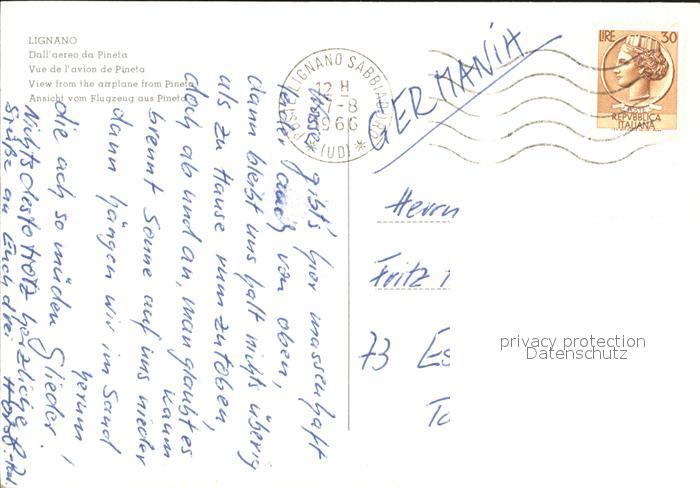 LIGNANO
Dall'aereo da Pineta
Vue de l'avion de Pineta
View from the airplane from Pineta
Ansicht vom Flugzeug aus Pineta
POSTE LIGNANO SABBIADORO
12 H
-8
1966
* (UD) *
LIRE 30
POSTE
REPVBBLICA
ITALIANA
GERMANIA
Wasser gibt's hier massenhaft
leider auch von oben,
dann bleibt uns halt nichts übrig
als zu Hause rumzutoben,
doch ab und an, man glaubt es
kaum
brennt Sonne auf uns nieder
dann hängen wir im Sand
herum,
die ach so müden Glieder.
Nichtsdestotrotz herzliche
Grüße an Euch drei
Herrn
Fritz
73 Es
privacy protection
Datenschutz